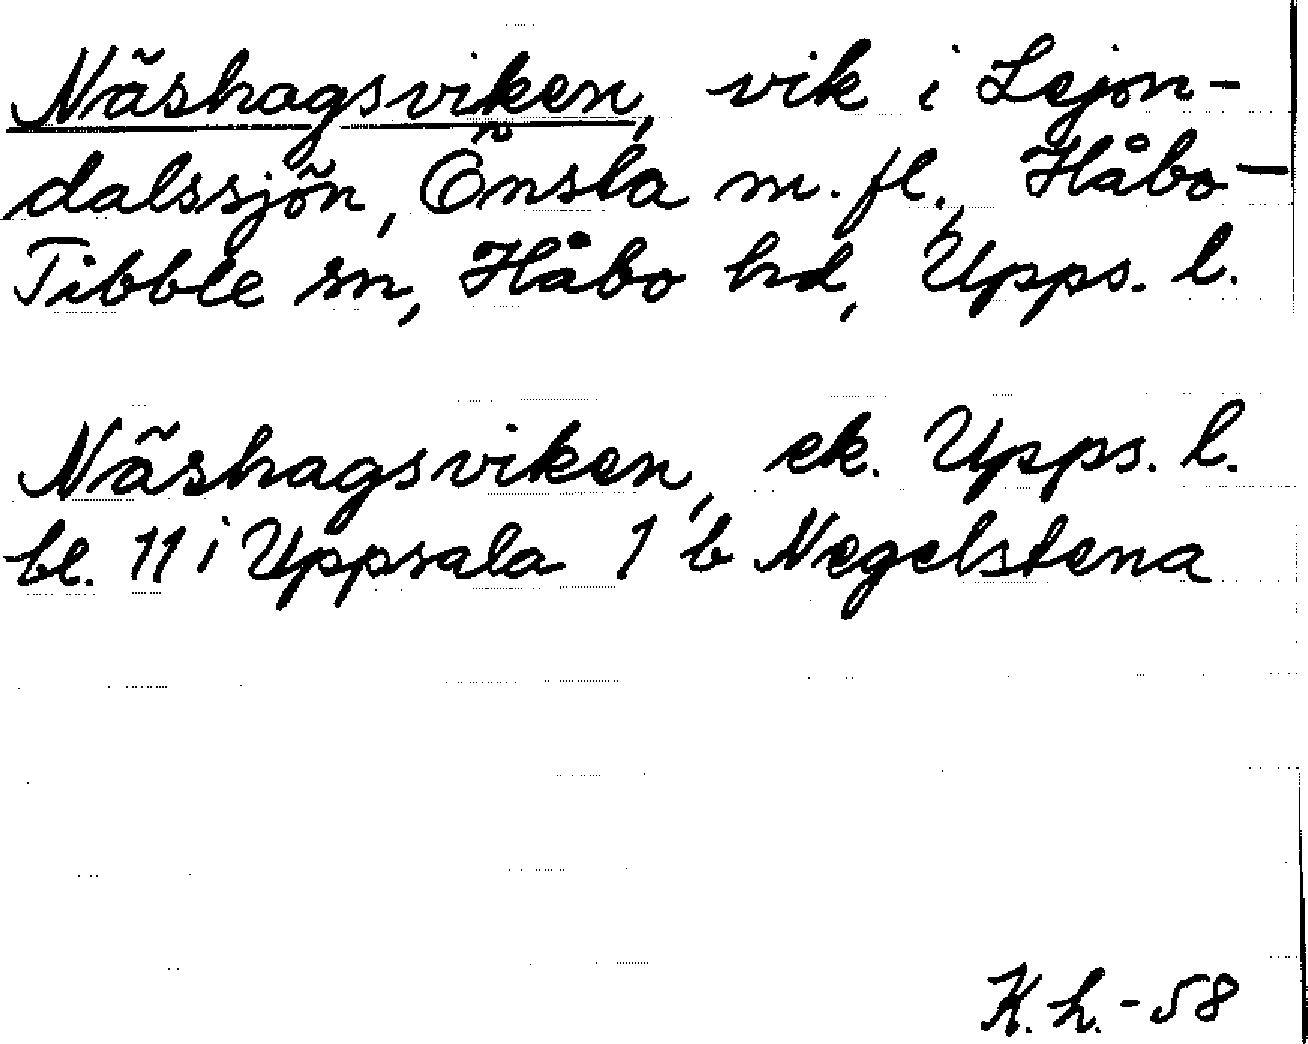 Näshagsviken, vik i Lejon-
dalssjön, Önsla m. fl., Håbo-
Tibble sn, Håbo hd, Upps. l.
Näshagsviken, ek. Upps. l.
bl. 11 i Uppsala 1 b Negelstena
K. h. - 58